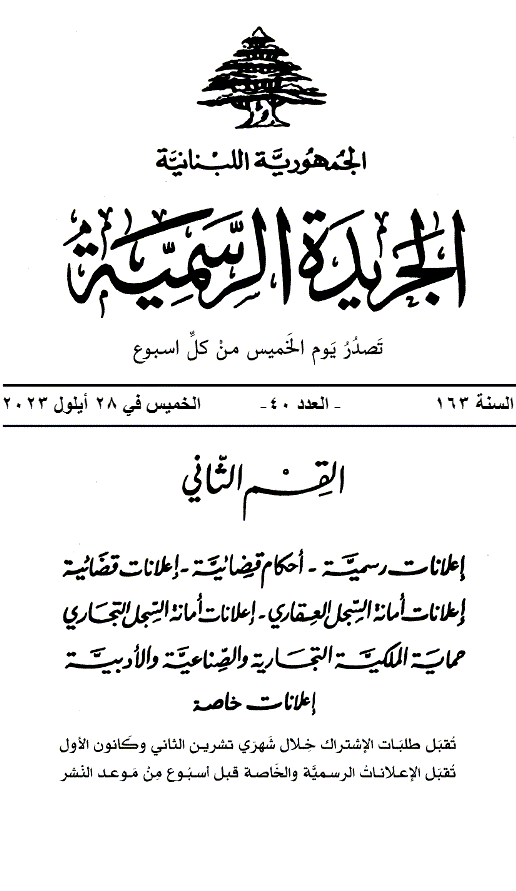 الجُمهُوريَّة اللبْنانيَّة
الجَريدَة الرسَّمِيَّة
تَصدُرُ يَوم الخَميس منْ كلِّ اسبوع
السنة ١٦٣ - العدد ٤٠- الخميس في ٢٨ أيلول ٢٠٢٣
القِسْم الثّاني
إعلانات رسميَّة - أحكام قضائيَّة - إعلانات قضائية
إعلانات أمانة السِّجل العِقاري - إعلانات أمانة السِّجل التجاري
حماية الملكيَّة التجارية والصِّناعيَّة والأدبيَّة
إعلانات خاصة
تُقبَل طلبَات الإشتراك خِلال شَهرَي تشرين الثاني وكَانون الأول
تُقبَل الإعلاناتُ الرسميَّة والخَاصة قبل أسبُوع مِنْ مَوعد النَشر